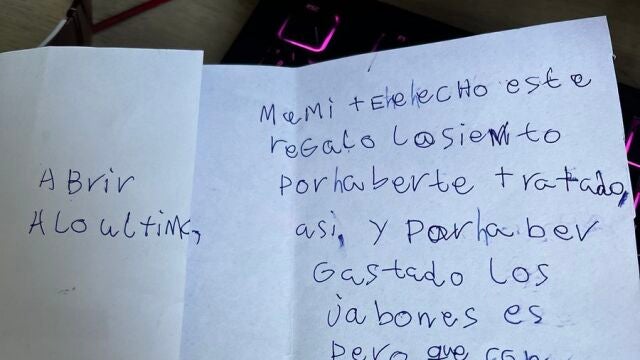 ABrir
ALOultiMo,
MaMi tEheheCHO este
reGALO LosieNto
Porhaberte tratado,
asi, y Porhaber
Gastado Los
jabones es
Pero que con